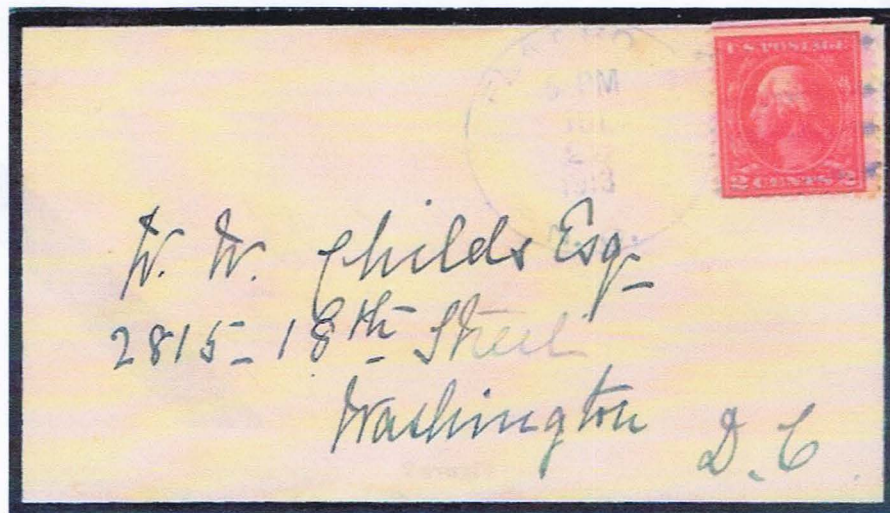 U.S. POSTAGE
2 CENTS 2
W. W. Childs Esq.
2815-18th Street
Washington
D.C.